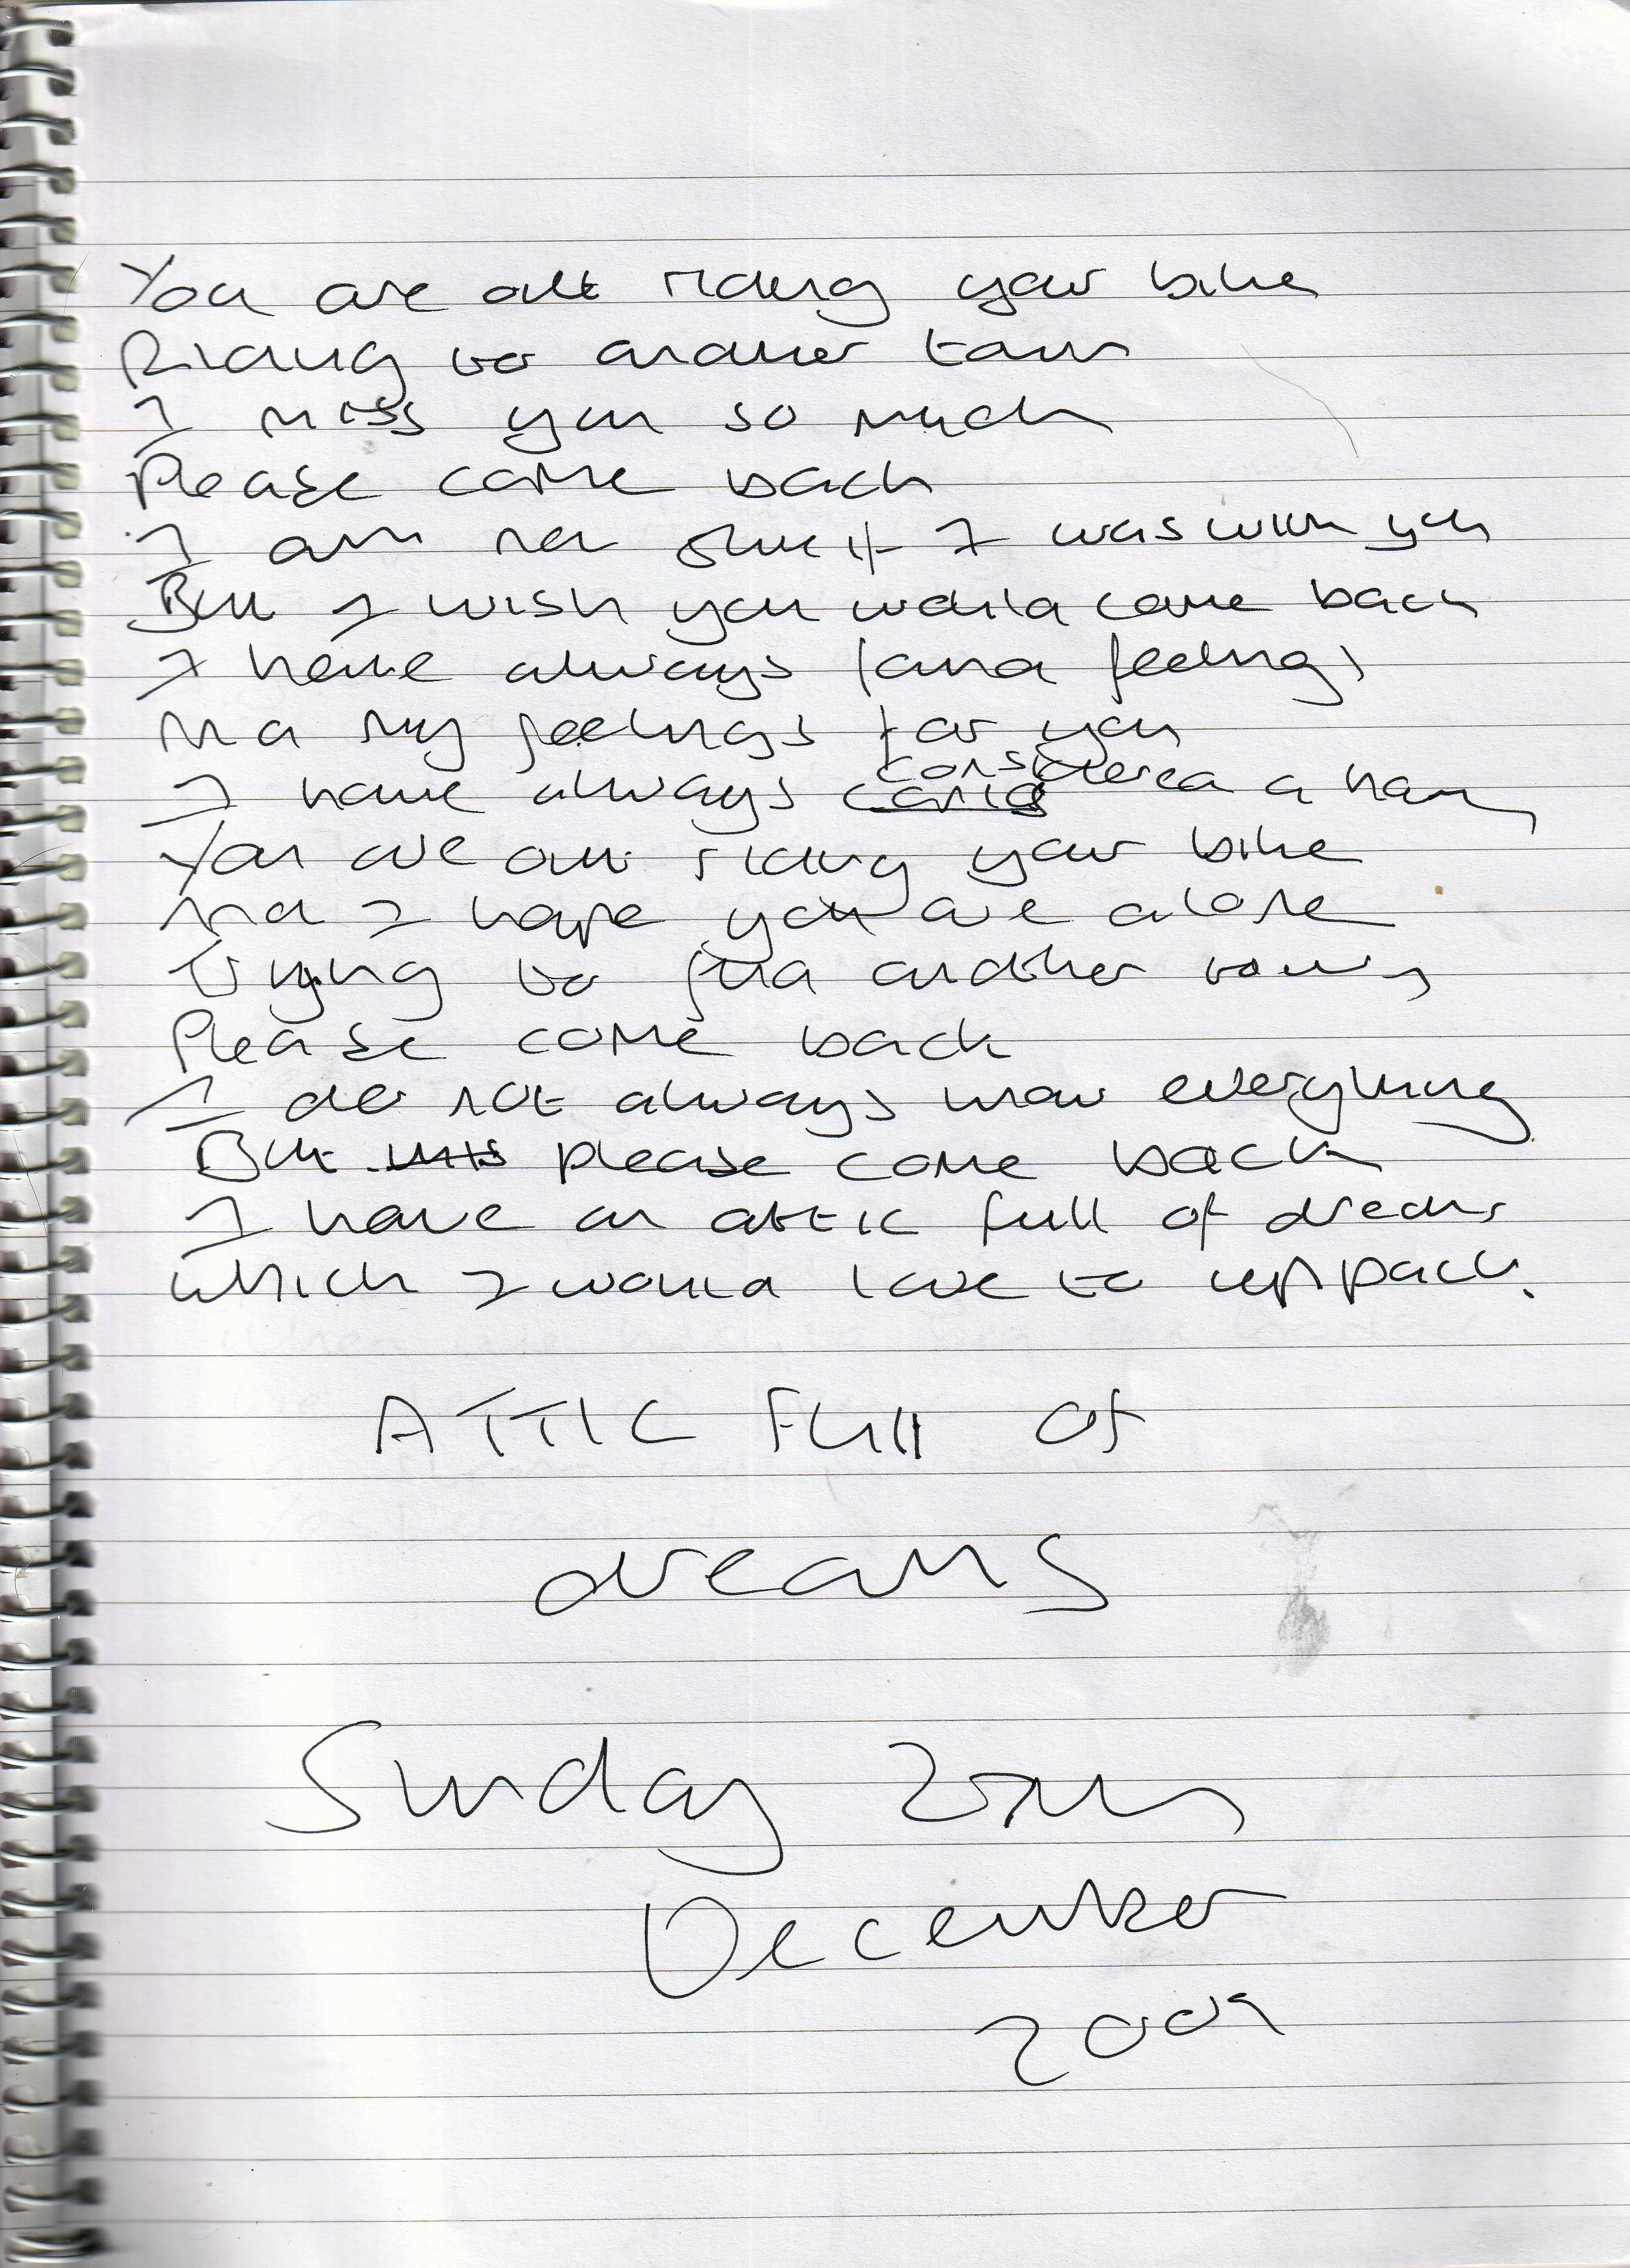 You are out riding your bike
Riding to another town
I miss you so much
Please come back
I am not sure if I was with you
But I wish you would come back
I have always found feelings
And my feelings for you
I have always considered a
You are out riding your bike
And I hope you are alone
Trying to find another town
Please come back
I do not always know everything
But this please come back
I have an attic full of dreams
which I would love to unpack.
ATTIC Full Of
dreams
Sunday
December
2009